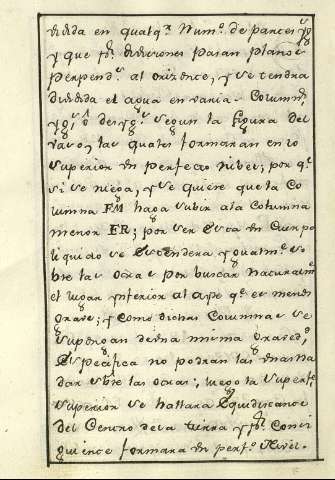 dibida en qualqr Numo de partes ygs
y que ps diviciones pasan planos
Perpends al orizonte, y se tendra
dividida el agua en varias Columns
ygs ô desygs segun la figura del
vaso, las quales formaran en lo
superior un perfecto nibel; por qe
si se niega, y se quiere que la Co
lumna FM haga subir ala Columna
menor ER; por ser esta un Cuerpo
liquido se Estendera ygualmte so
bre las otras por buscar naturalmte
el lugar ynferior al ayre qe es menos
grave; y como dichas Columnas se
supongan dela misma gravedd
Especifica no podran las unas man
dar sobre las otras; luego la superfe
superior se hallara Equidistante
del Centro dela tierra y pr Consi
guiente formara un perfto Nivel.